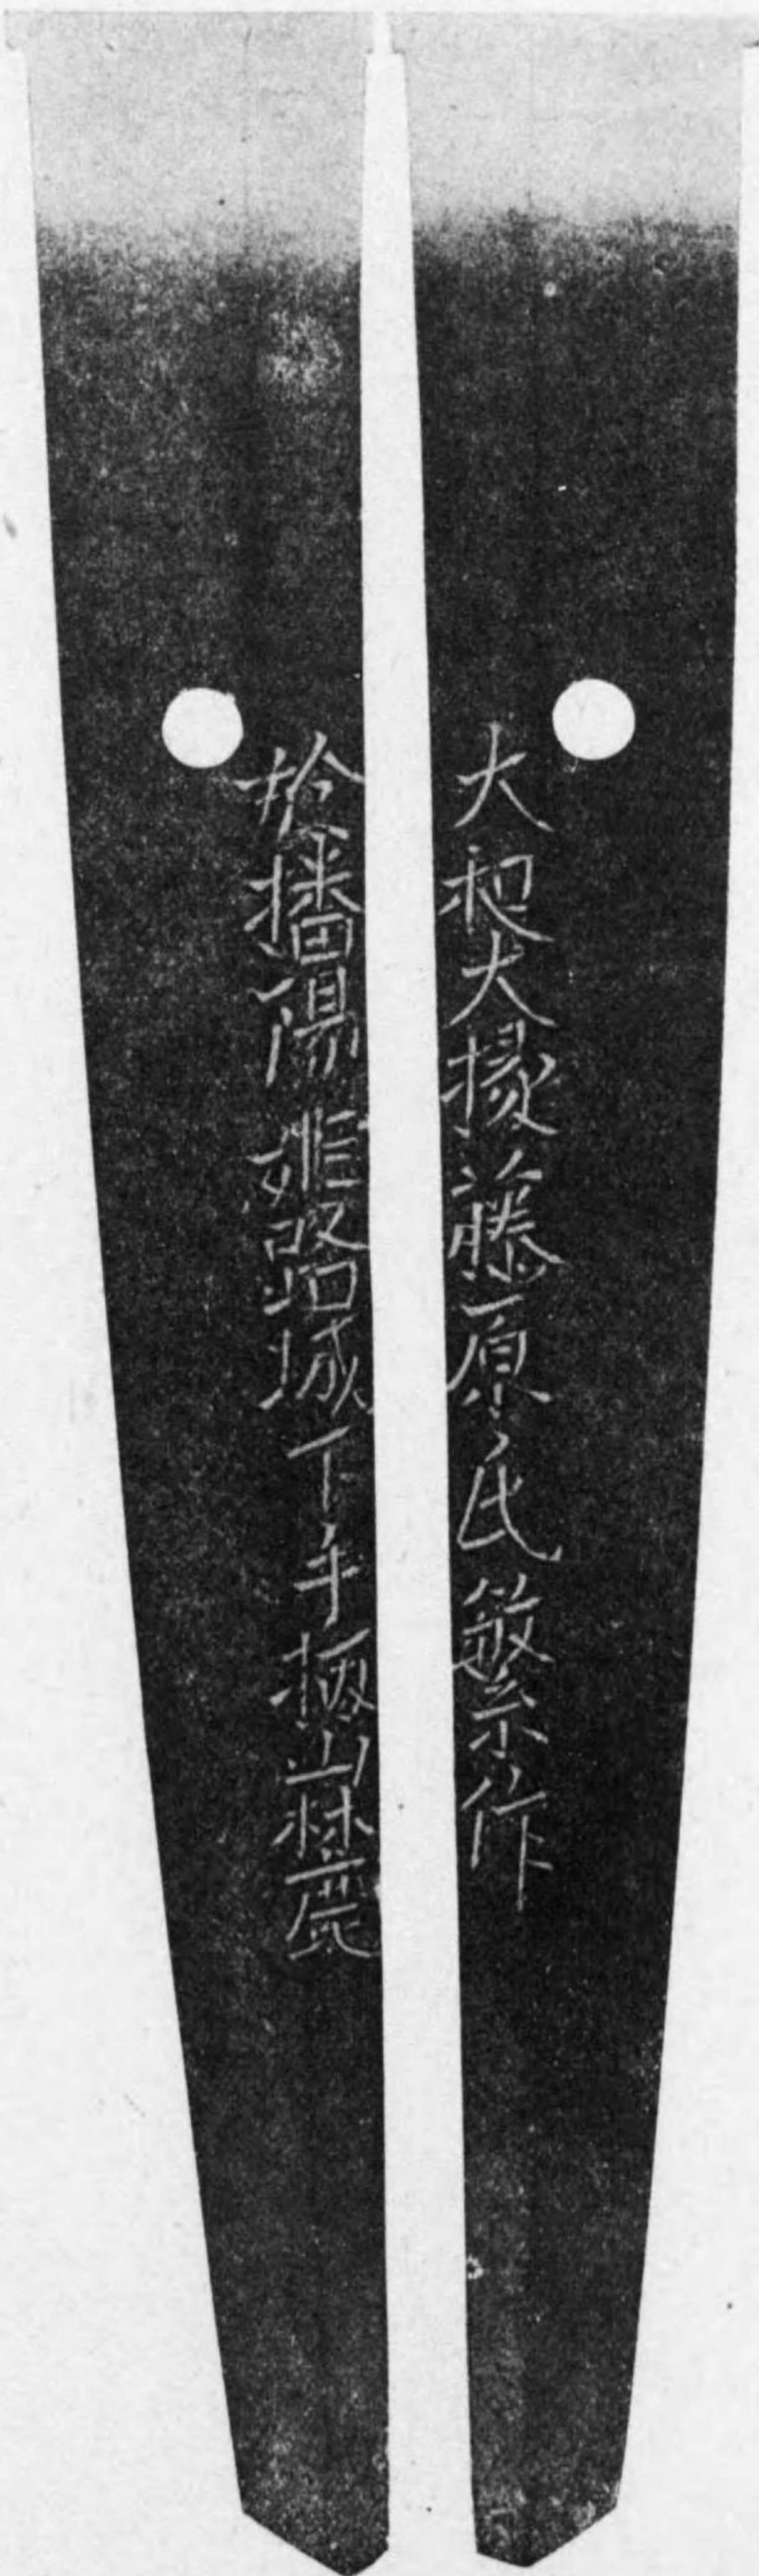 大和大掾藤原氏繁作
於播陽姫路城下手柄山林麓